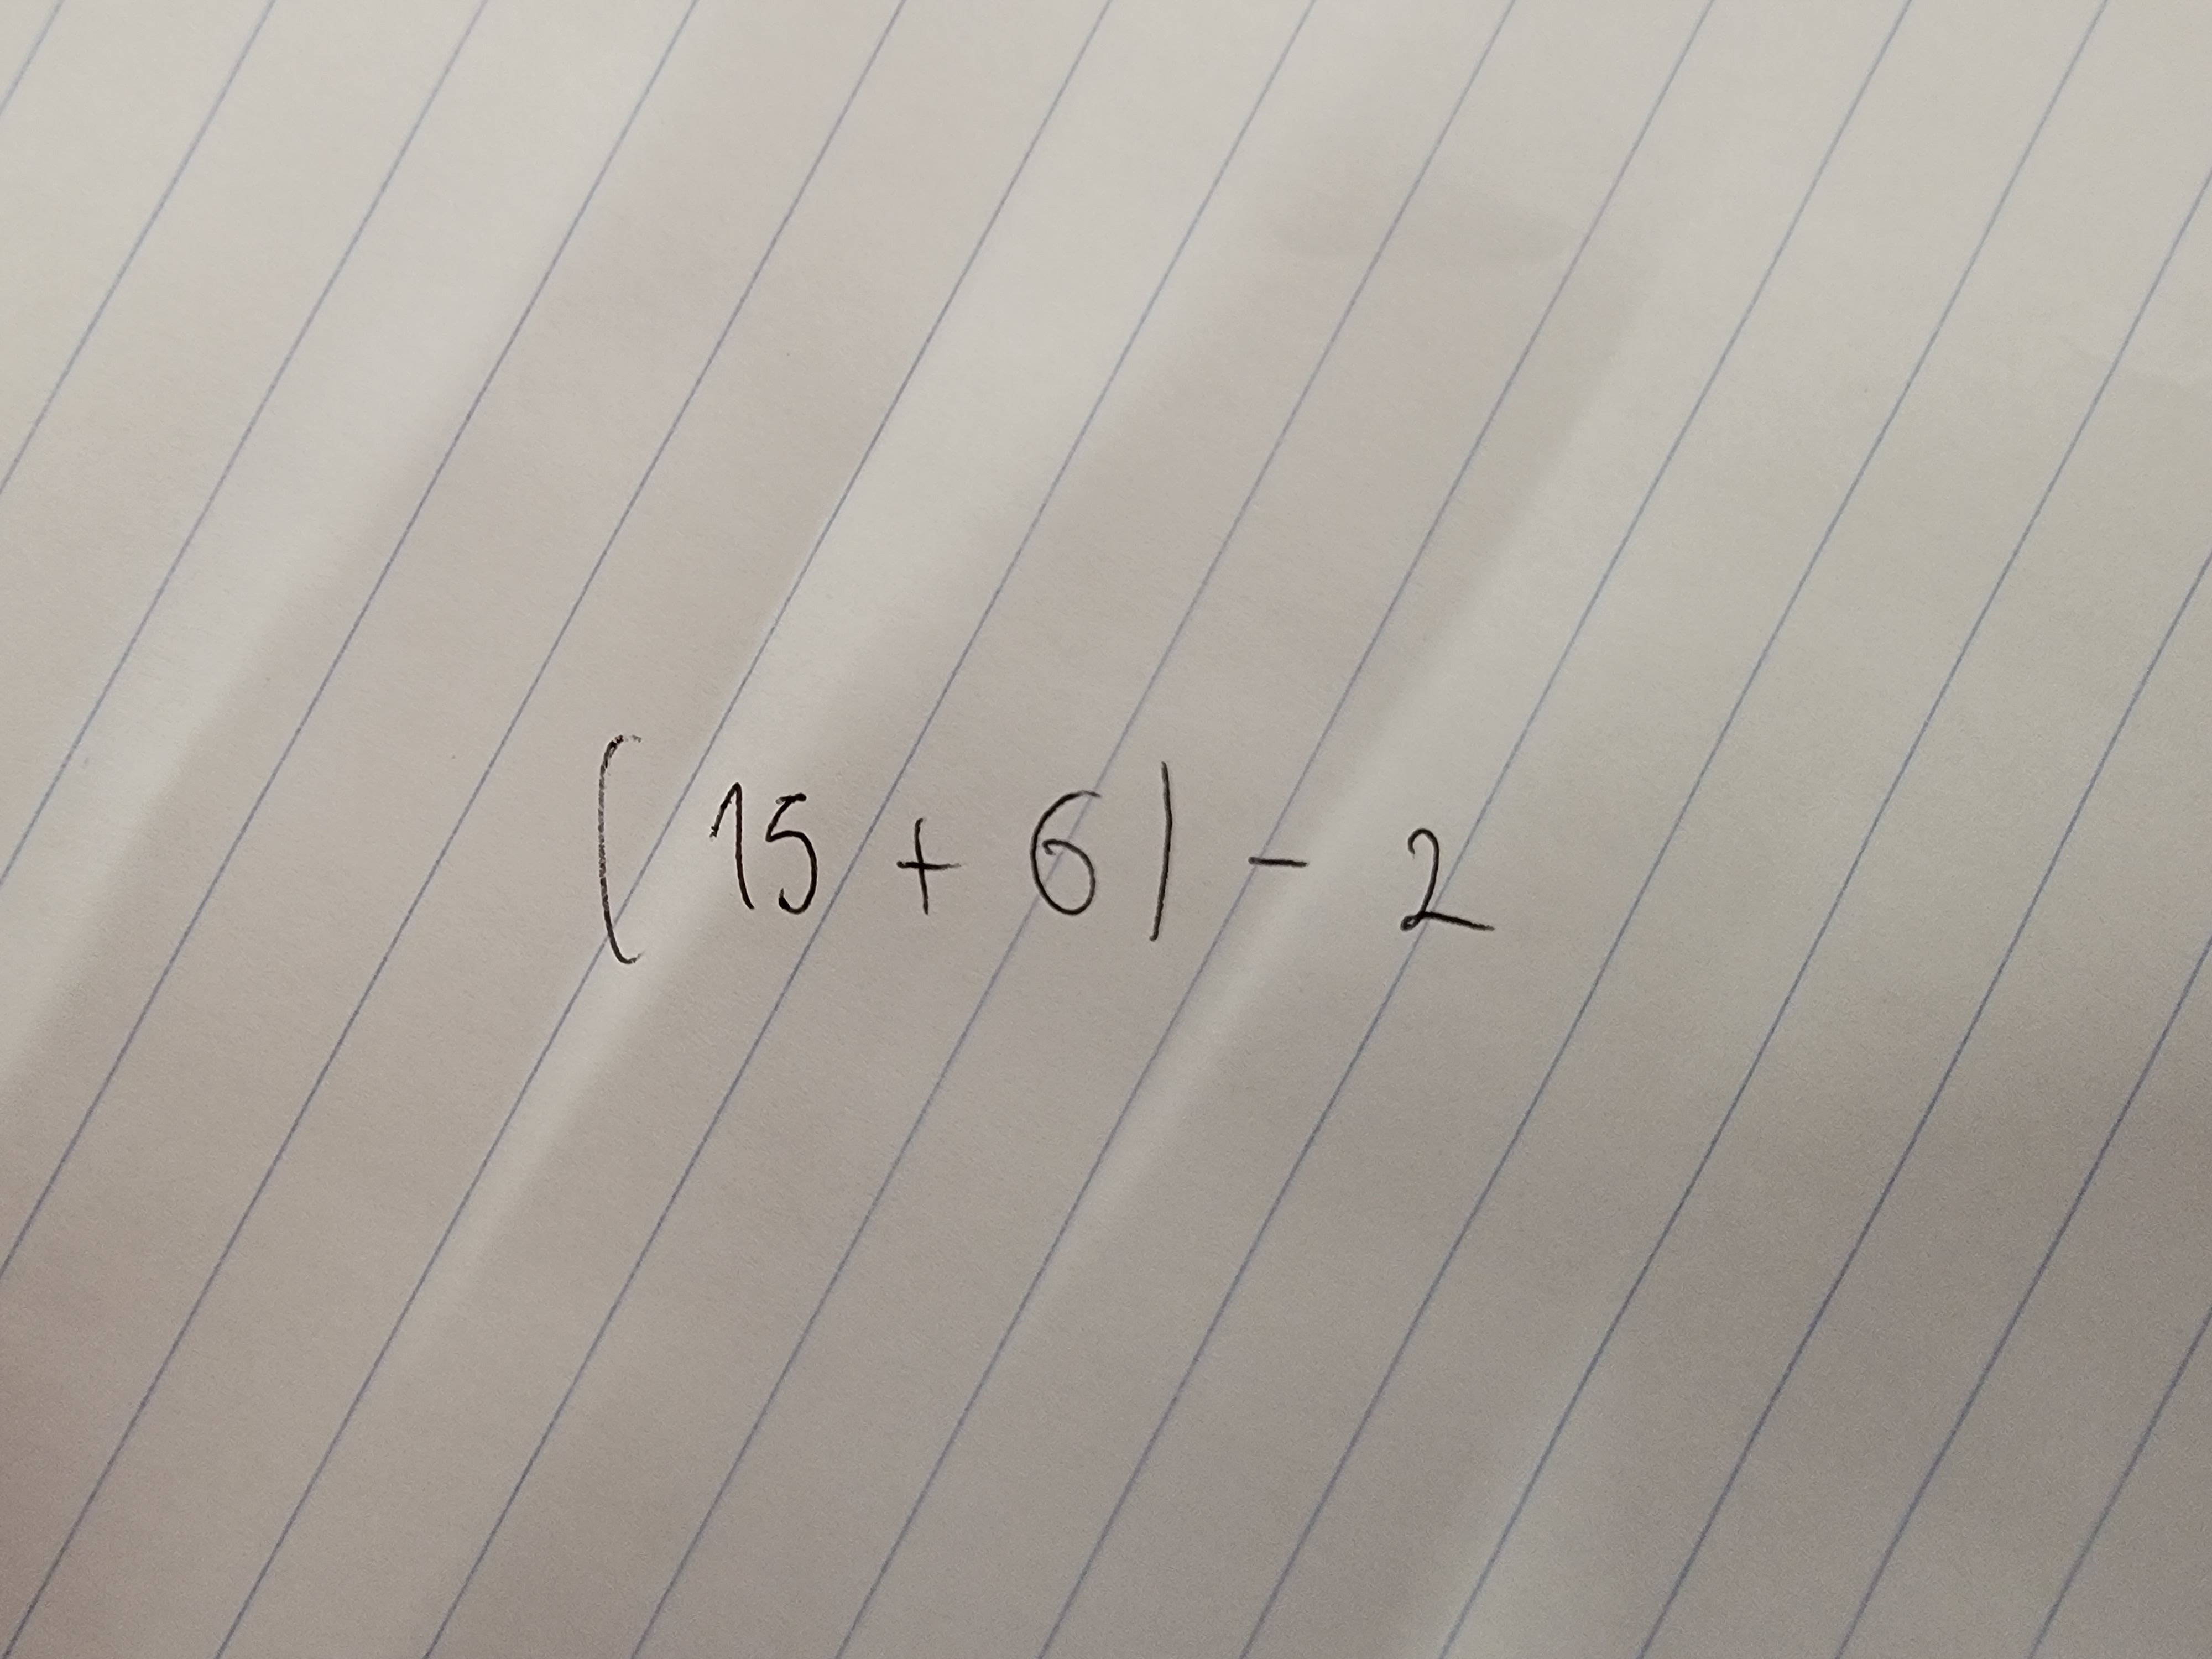 (15 + 6) - 2